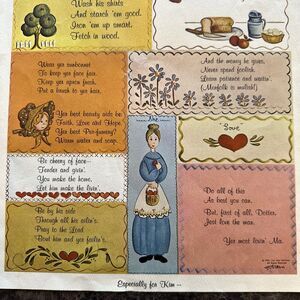 Wash his shirts
And starch 'em good.
Iron 'em up smart.
Fetch in wood.
Wear yer sunbonnet
To keep yer face fair.
Keep up yer apern fresh.
Put a brush to yer hair.
And the money he gives,
Never spend foolish.
Learn patience and waitin'.
(Menfolk is mulish!)
Yer best beauty aids be
Faith, Love and Hope.
Yer best Per-fumery?
Warm water and soap.
Love
Be cheery of face—
Tender and givin'.
You make the home,
Let him make the livin'.
Be by his side
Through all his ailin's.
Pray to the Lord
'Bout him and yer failin's.
Do all of this
As best you can.
But, first of all, Dotter,
Jest love the man.
Yer most lovin' Ma.
Especially for Kim --